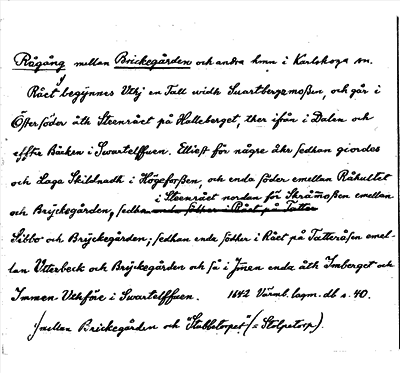 Rågång mellan Brickegården och andra hmn i Karlskoga sn.
Rået begynnes Uthj en Tall widh Swartbergemoßen, och går i
Öster söder åth Steenrået på Halleberget, ther ifrån i Dalen och
effter Bäcken i Swartelffuen. Elliest för någre åhr sedhan giordes
och Laga Skildnadh i Högeforßen, och enda söder emellan Råhultet
i Steenrået nordan för Skråmoßen emellan
och Bryckegården, sedhan enda södher i Rået på Tatter
Sibbo och Bryckegården; sedhan enda södher i Rået på Tatteråsen emel-
lan Utterbeck och Bryckegården och så i Jönen enda åth Imberget och
Immen Uthföre i Swartelffuen. 1642 Värml. lagm. db s. 40.
mellan Brickegården och "Stabbetorpet" (= Stolpetorp).